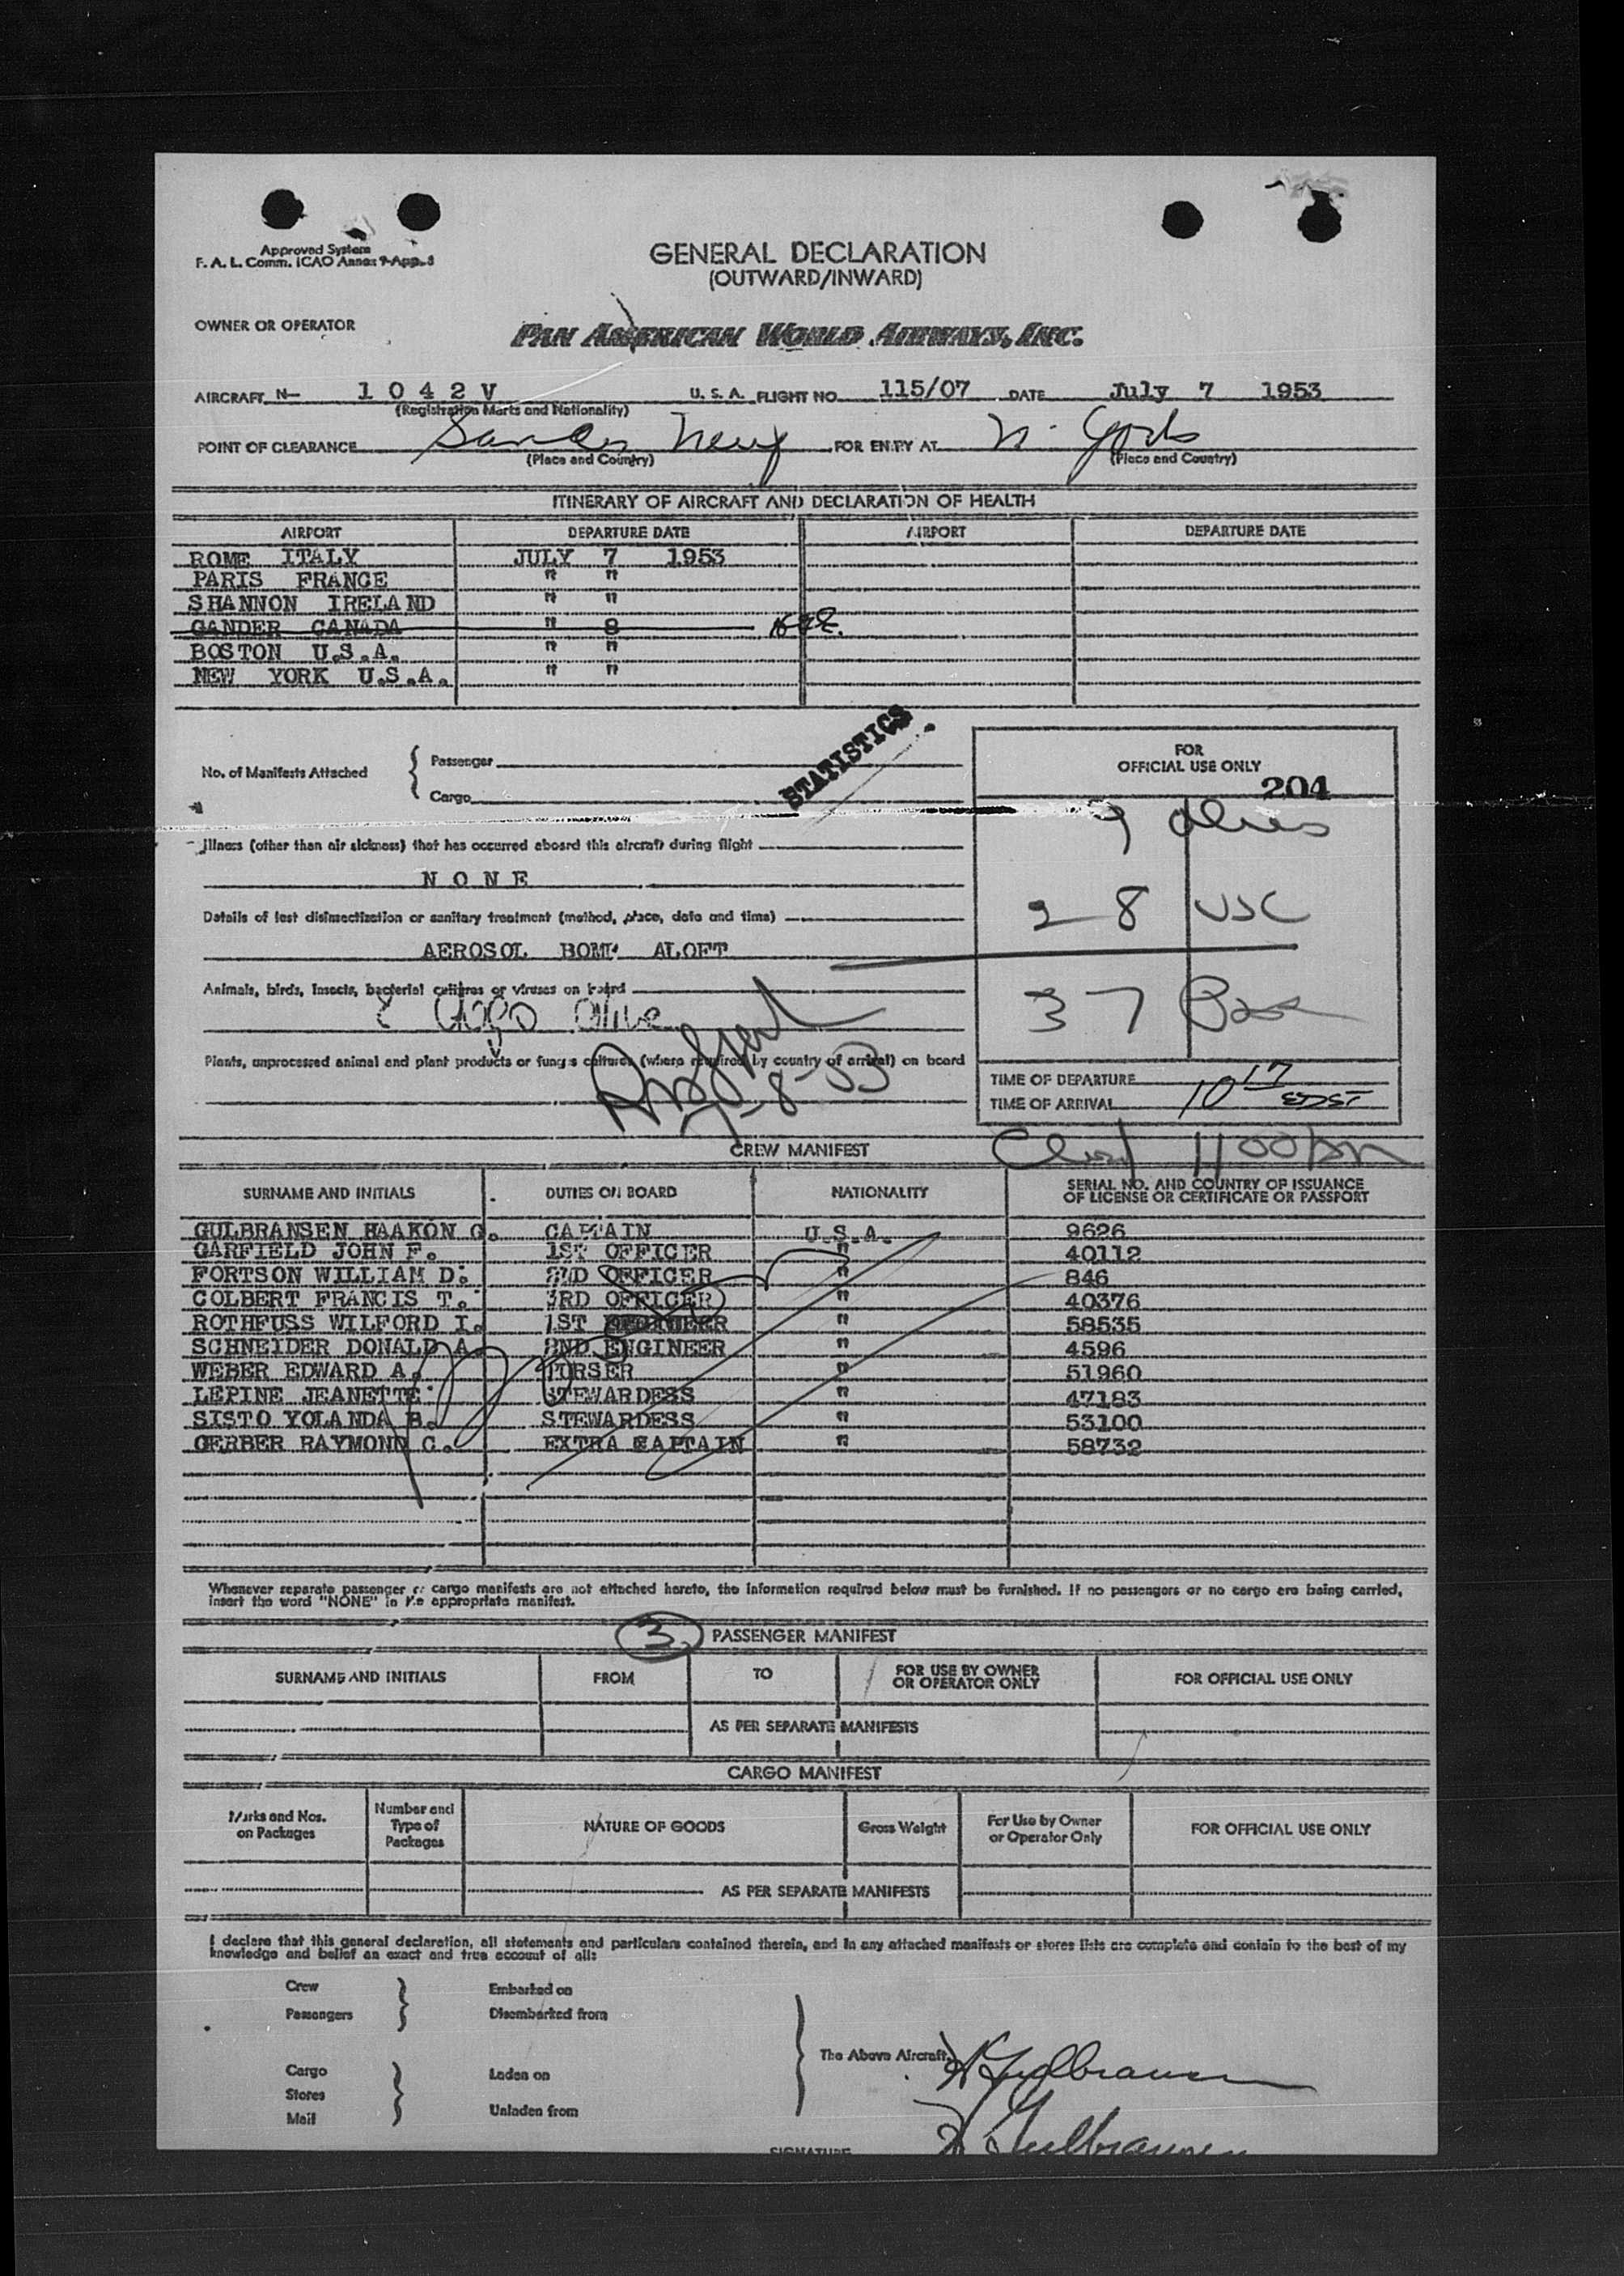 Approved System
F. A. L. Comm. ICAO Annex 9-App. 3
GENERAL DECLARATION
(OUTWARD/INWARD)
OWNER OR OPERATOR
PAN AMERICAN WORLD AIRWAYS, INC.
AIRCRAFT N- 1 0 4 2 V U. S. A. FLIGHT NO. 115/07 DATE July 7 1953
(Registration Marks and Nationality)
POINT OF CLEARANCE FOR ENTRY AT
(Place and Country) (Place and Country)
ITINERARY OF AIRCRAFT AND DECLARATION OF HEALTH
AIRPORT DEPARTURE DATE AIRPORT DEPARTURE DATE
ROME ITALY JULY 7 1953
PARIS FRANCE " "
SHANNON IRELAND " "
GANDER CANADA " 8
BOSTON U.S.A. " "
NEW YORK U.S.A. " "
STATISTICS
No. of Manifests Attached { Passenger
Cargo
FOR
OFFICIAL USE ONLY
204
9
28 USC
37
Illness (other than air sickness) that has occurred aboard this aircraft during flight
N O N E
Details of last disinsectization or sanitary treatment (method, place, date and time)
AEROSOL BOMB ALOFT
Animals, birds, insects, bacterial cultures or viruses on board
Plants, unprocessed animal and plant products or fungus cultures (where required by country of arrival) on board
7-8-53
TIME OF DEPARTURE
TIME OF ARRIVAL 10 17 EDST
CREW MANIFEST
SURNAME AND INITIALS DUTIES ON BOARD NATIONALITY SERIAL NO. AND COUNTRY OF ISSUANCE
OF LICENSE OR CERTIFICATE OR PASSPORT
GULBRANSEN HAAKON G. CAPTAIN U.S.A. 9626
GARFIELD JOHN F. 1ST OFFICER " 40112
FORTSON WILLIAM D. 2ND OFFICER " 846
COLBERT FRANCIS T. 3RD OFFICER " 40376
ROTHFUSS WILFORD I. 1ST ENGINEER " 58535
SCHNEIDER DONALD A. 2ND ENGINEER " 4596
WEBER EDWARD A. PURSER " 51960
LEPINE JEANETTE STEWARDESS " 47183
SISTO YOLANDA B. STEWARDESS " 53100
GERBER RAYMOND C. EXTRA CAPTAIN " 58732
Whenever separate passenger or cargo manifests are not attached hereto, the information required below must be furnished. If no passengers or no cargo are being carried,
insert the word "NONE" in the appropriate manifest.
3 PASSENGER MANIFEST
SURNAME AND INITIALS FROM TO FOR USE BY OWNER
OR OPERATOR ONLY FOR OFFICIAL USE ONLY
AS PER SEPARATE MANIFESTS
CARGO MANIFEST
Marks and Nos.
on Packages Number and
Type of
Packages NATURE OF GOODS Gross Weight For Use by Owner
or Operator Only FOR OFFICIAL USE ONLY
AS PER SEPARATE MANIFESTS
I declare that this general declaration, all statements and particulars contained therein, and in any attached manifests or stores lists are complete and contain to the best of my
knowledge and belief an exact and true account of all:
Crew Embarked on
Passengers Disembarked from
The Above Aircraft. H Gulbransen
Cargo Laden on
Stores
Mail Unladen from
SIGNATURE H Gulbransen